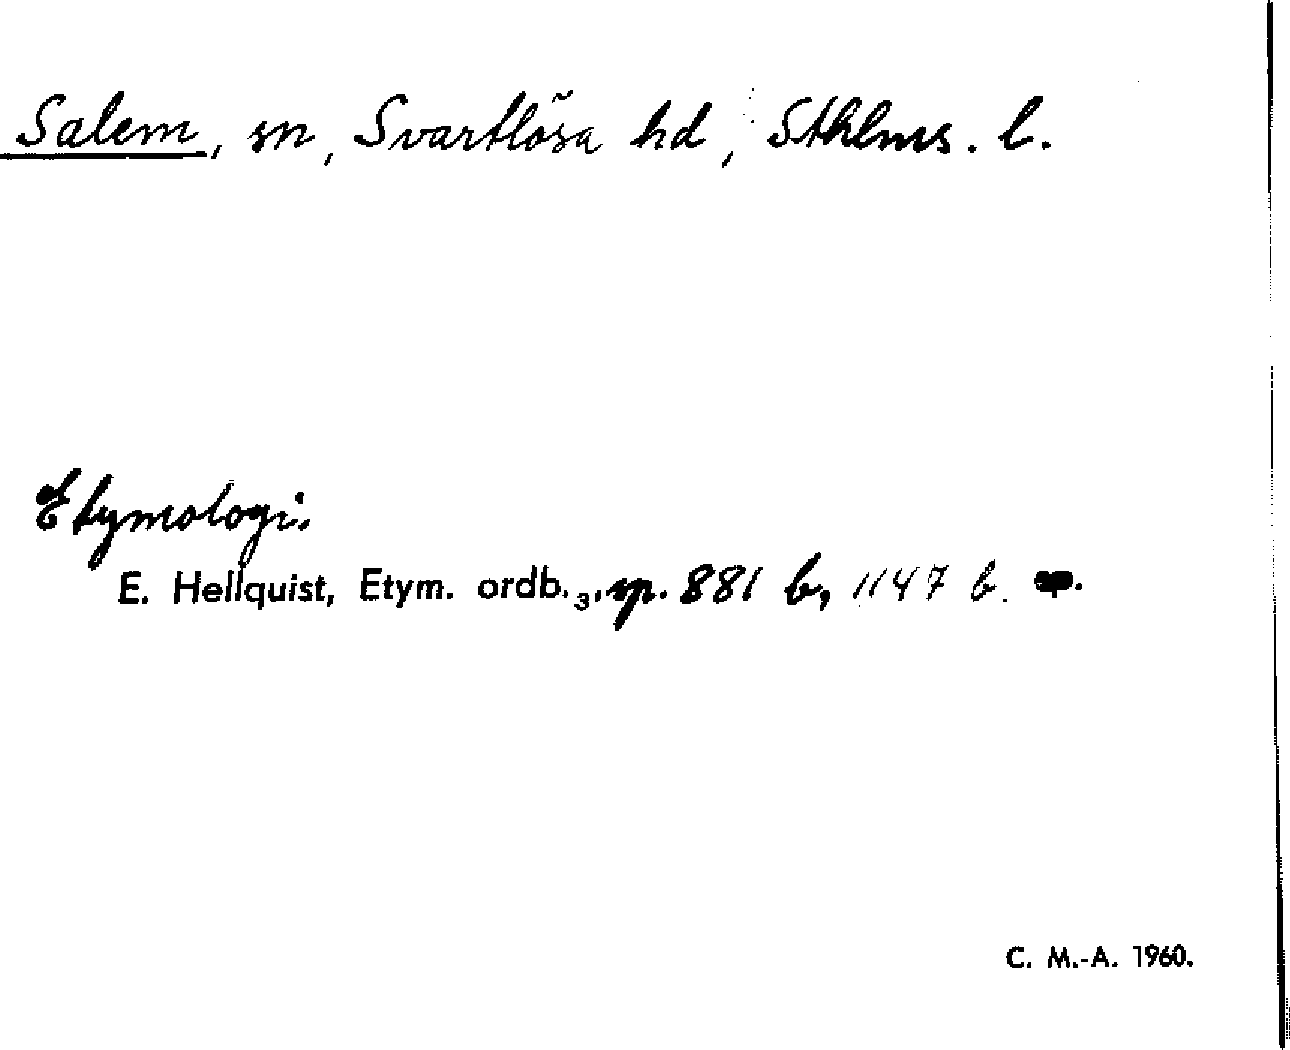 Salem, sn, Svartlösa hd, Sthlms. l.
Etymologi.
E. Hellquist, Etym. ordb.₃, sp. 881 b, 1147 b.
C. M.-A. 1960.